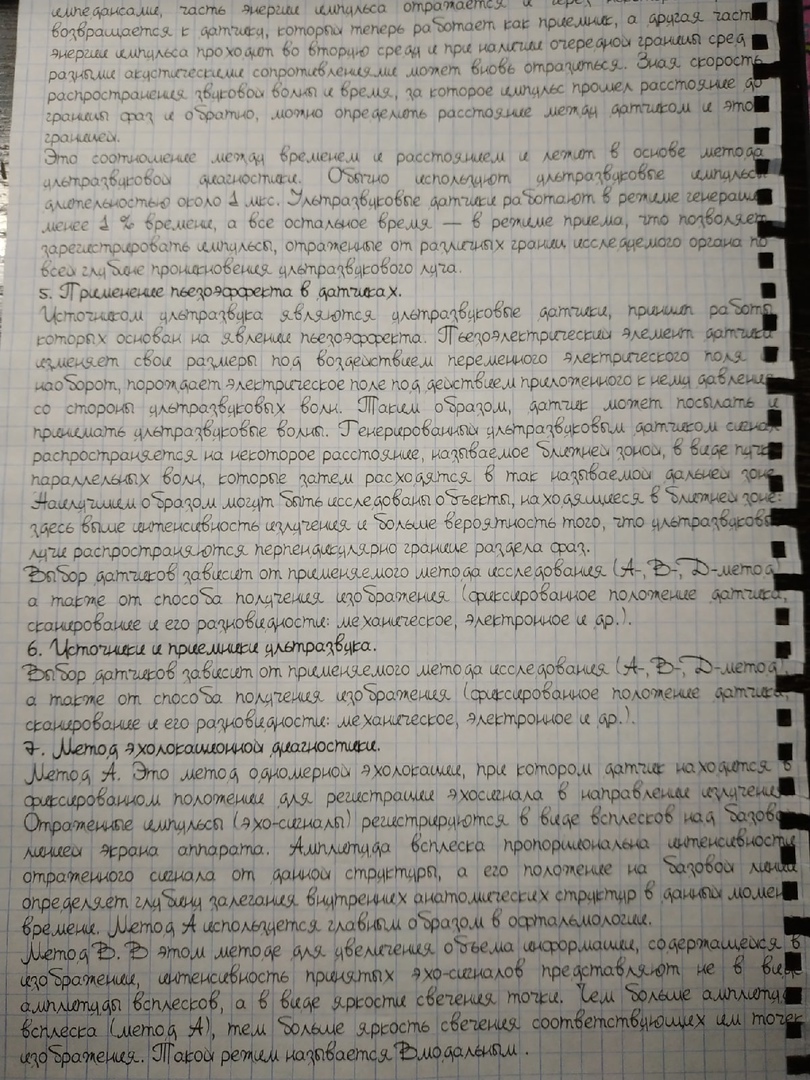 импедансами, часть энергии импульса отражается и через
возвращается к датчику, который теперь работает как приемник, а другая част
энергии импульса проходит во вторую среду и при наличии очередной границы сред
разными акустическими сопротивлениями может вновь отразиться. Зная скорость
распространения звуковой волны и время, за которое импульс прошел расстояние до
границы фаз и обратно, можно определить расстояние между датчиком и это
границей.
Это соотношение между временем и расстоянием и лежит в основе метода
ультразвуковой диагностики. Обычно используют ультразвуковые импульсы
длительностью около 1 мкс. Ультразвуковые датчики работают в режиме генераци
менее 1 % времени, а все остальное время — в режиме приема, что позволяет
зарегистрировать импульсы, отраженные от различных границ исследуемого органа по
всей глубине проникновения ультразвукового луча.
5. Применение пьезоэффекта в датчиках.
Источником ультразвука являются ультразвуковые датчики, принцип работы
которых основан на явлении пьезоэффекта. Пьезоэлектрический элемент датчика
изменяет свои размеры под воздействием переменного электрического поля
наоборот, порождает электрическое поле под действием приложенного к нему давления
со стороны ультразвуковых волн. Таким образом, датчик может посылать и
принимать ультразвуковые волны. Генерированный ультразвуковым датчиком сигнал
распространяется на некоторое расстояние, называемое ближней зоной, в виде пучка
параллельных волн, которые затем расходятся в так называемой дальней зоне.
Наилучшим образом могут быть исследованы объекты, находящиеся в ближней зоне:
здесь выше интенсивность излучения и больше вероятность того, что ультразвуковы
лучи распространяются перпендикулярно границе раздела фаз.
Выбор датчиков зависит от применяемого метода исследования (А-, В-, D-метод
а также от способа получения изображения (фиксированное положение датчика,
сканирование и его разновидности: механическое, электронное и др.).
6. Источники и приемники ультразвука.
Выбор датчиков зависит от применяемого метода исследования (А-, В-, D-метод
а также от способа получения изображения (фиксированное положение датчика,
сканирование и его разновидности: механическое, электронное и др.).
7. Метод эхолокационной диагностики.
Метод А. Это метод одномерной эхолокации, при котором датчик находится в
фиксированном положении для регистрации эхосигнала в направлении излучения
Отраженные импульсы (эхо-сигналы) регистрируются в виде всплесков над базово
линией экрана аппарата. Амплитуда всплеска пропорциональна интенсивности
отраженного сигнала от данной структуры, а его положение на базовой линии
определяет глубину залегания внутренних анатомических структур в данный момен
времени. Метод А используется главным образом в офтальмологии.
Метод В. В этом методе для увеличения объема информации, содержащейся в
изображении, интенсивность принятых эхо-сигналов представляют не в виде
амплитуды всплесков, а в виде яркости свечения точки. Чем больше амплитуда
всплеска (метод А), тем больше яркость свечения соответствующих им точек
изображения. Такой режим называется Вмодальным.